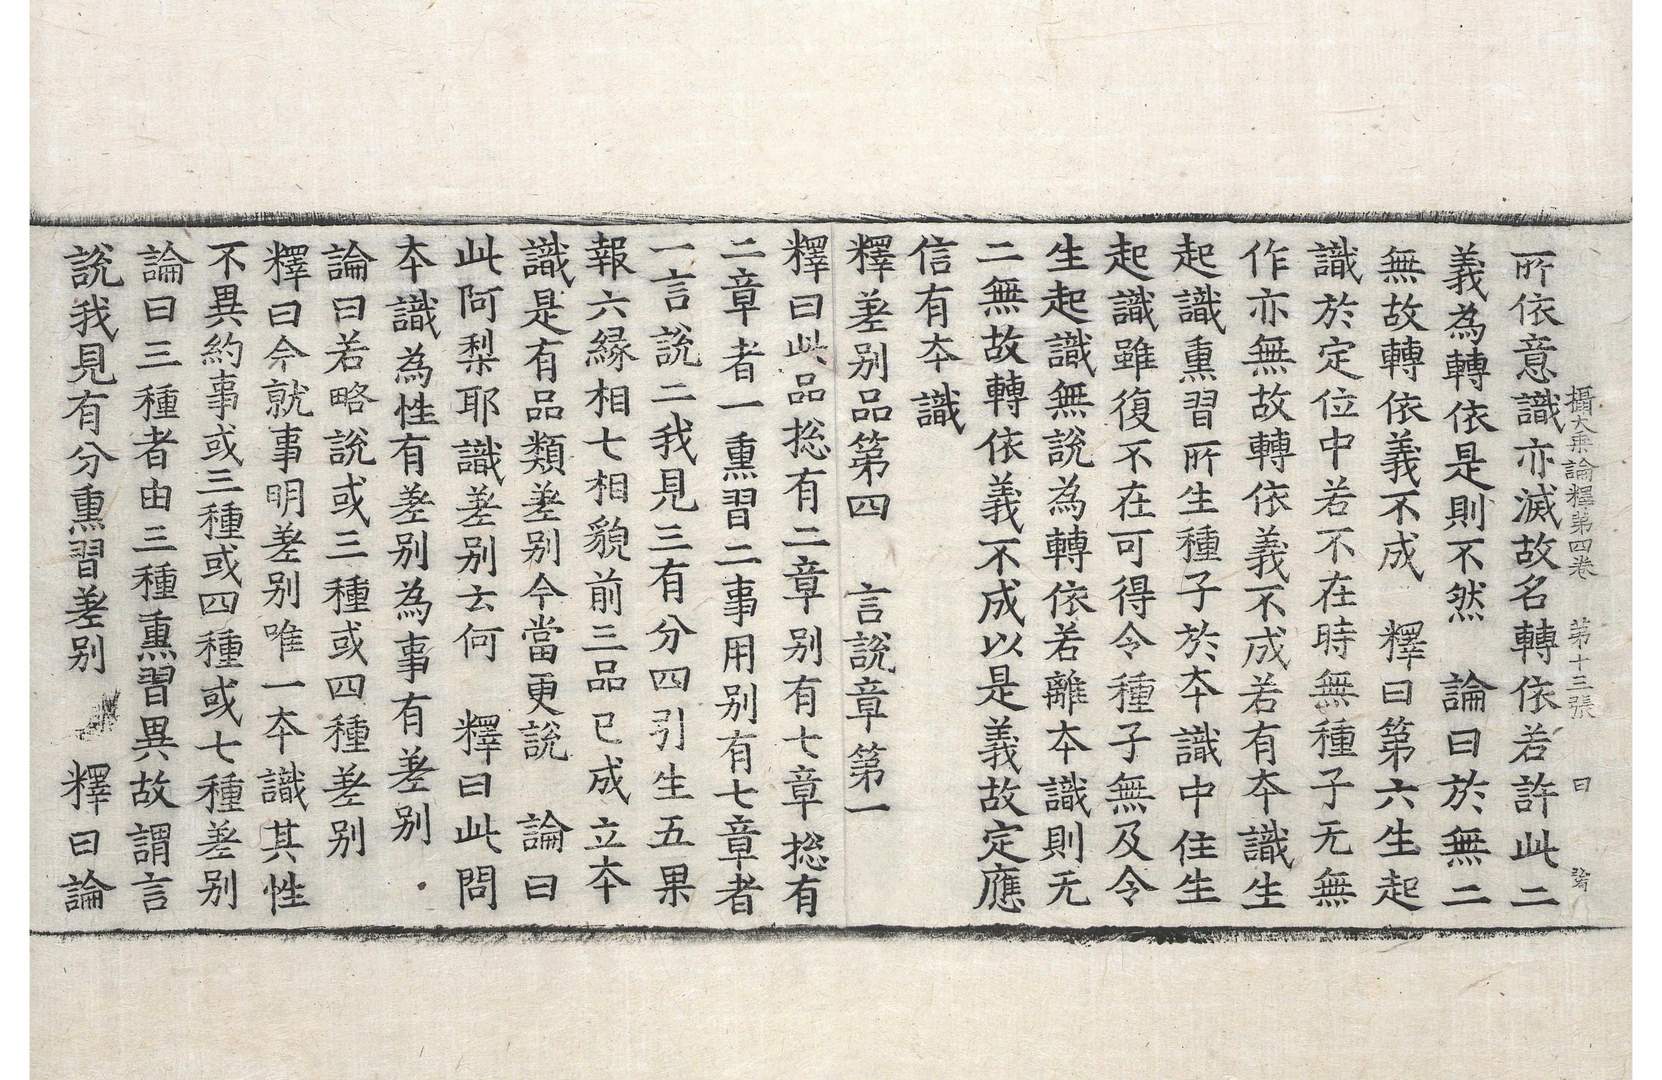 攝大乗論釋第四卷　第十三張　曰
所依意識亦滅故名轉依若許此二
義為轉依是則不然　論曰於無二
無故轉依義不成　釋曰第六生起
識於定位中若不在時無種子无無
作亦無故轉依義不成若有夲識生
起識熏習所生種子於夲識中住生
起識雖復不在可得令種子無及令
生起識無說為轉依若離夲識則无
二無故轉依義不成以是義故定應
信有夲識
釋差别品第四　言說章第一
釋曰此品捴有二章别有七章捴有
二章者一熏習二事用别有七章者
一言說二我見三有分四引生五果
報六緣相七相貌前三品已成立夲
識是有品類差别今當更說　論曰
此阿梨耶識差别云何　釋曰此問
夲識為性有差别為事有差别
論曰若略說或三種或四種差别
釋曰今就事明差别唯一夲識其性
不異約事或三種或四種或七種差别
論曰三種者由三種熏習異故謂言
說我見有分熏習差别　釋曰論